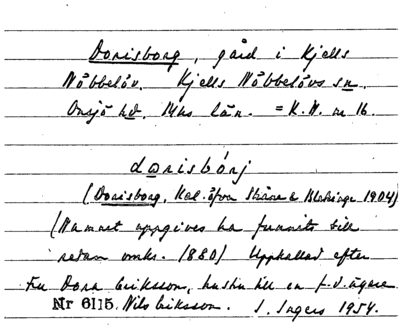 Dorisborg, gård i Kjells
Nöbbelöv. Kjells Nöbbelövs sn.
Onsjö hd. Mhs län. = K.N. nr 16.
dɷrisbórj
(Dorisborg, Kal. öfver Skåne & Blekinge 1904)
(Namnet uppgives ha funnits till
redan omkr. 1880) Uppkallad efter
Fru Dora Eriksson, hustru till en f.d. ägare
Nr 6115. Nils Eriksson. I. Ingers 1954.